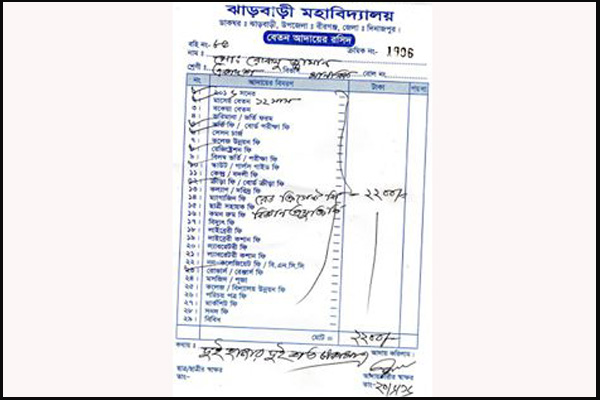 ঝাড়বাড়ী মহাবিদ্যালয়
ডাকঘর : ঝাড়বাড়ী, উপজেলা : বীরগঞ্জ, জেলা : দিনাজপুর।
বেতন আদায়ের রসিদ
বহি নং- ক্রমিক নং- 1906
নাম : মোঃ
শ্রেণী : বিভাগ মানবিক রোল নং
নং আদায়ের বিবরণ টাকা পয়সা
১। ২০১ সনের
২। মাসের বেতন ১২ মাস
৩। বকেয়া বেতন
৪। জরিমানা / ভর্তি ফরম
৫। ভর্তি ফি / বোর্ড পরীক্ষা ফি
৬। সেসন চার্জ
৭। কলেজ উন্নয়ন ফি
৮। রেজিষ্ট্রেশন ফি
৯। বিলম্ব ভর্তি / পরীক্ষা ফি
১০। স্কাউট / গার্লস গাইড ফি
১১। কেন্দ্র / বদলী ফি
১২। ক্রীড়া ফি / বোর্ড ক্রীড়া ফি
১৩। কল্যাণ / দরিদ্র ফি
১৪। ম্যাগাজিন ফি রেড ক্রিসেন্ট ফি - ২২০০/-
১৫। ছাত্রী সহায়ক ফি
১৬। কমন রুম ফি বিজ্ঞান ও প্রযুক্তি ফি
১৭। বিদ্যুৎ ফি
১৮। লাইব্রেরী ফি
১৯। লাইব্রেরী কশান ফি
২০। ল্যাবরেটরী ফি
২১। ল্যাবরেটরী কশান ফি
২২। নন-কলেজিয়েট ফি / বি.এন.সি.সি
২৩। রোভার্স / রেঞ্জার্স ফি
২৪। মসজিদ / পূজা
২৫। কলেজ / বিদ্যালয় উন্নয়ন ফি
২৬। পরিচয় পত্র ফি
২৭। মার্কশিট ফি
২৮। সনদ ফি
২৯। বিবিধ
মোট = ২২০০/-
কথায় : দুই হাজার দুই শত টাকা মাত্র আদায় করিলাম।
ছাত্র/ছাত্রীর স্বাক্ষর আদায়কারীর স্বাক্ষর
তাং- তাং-